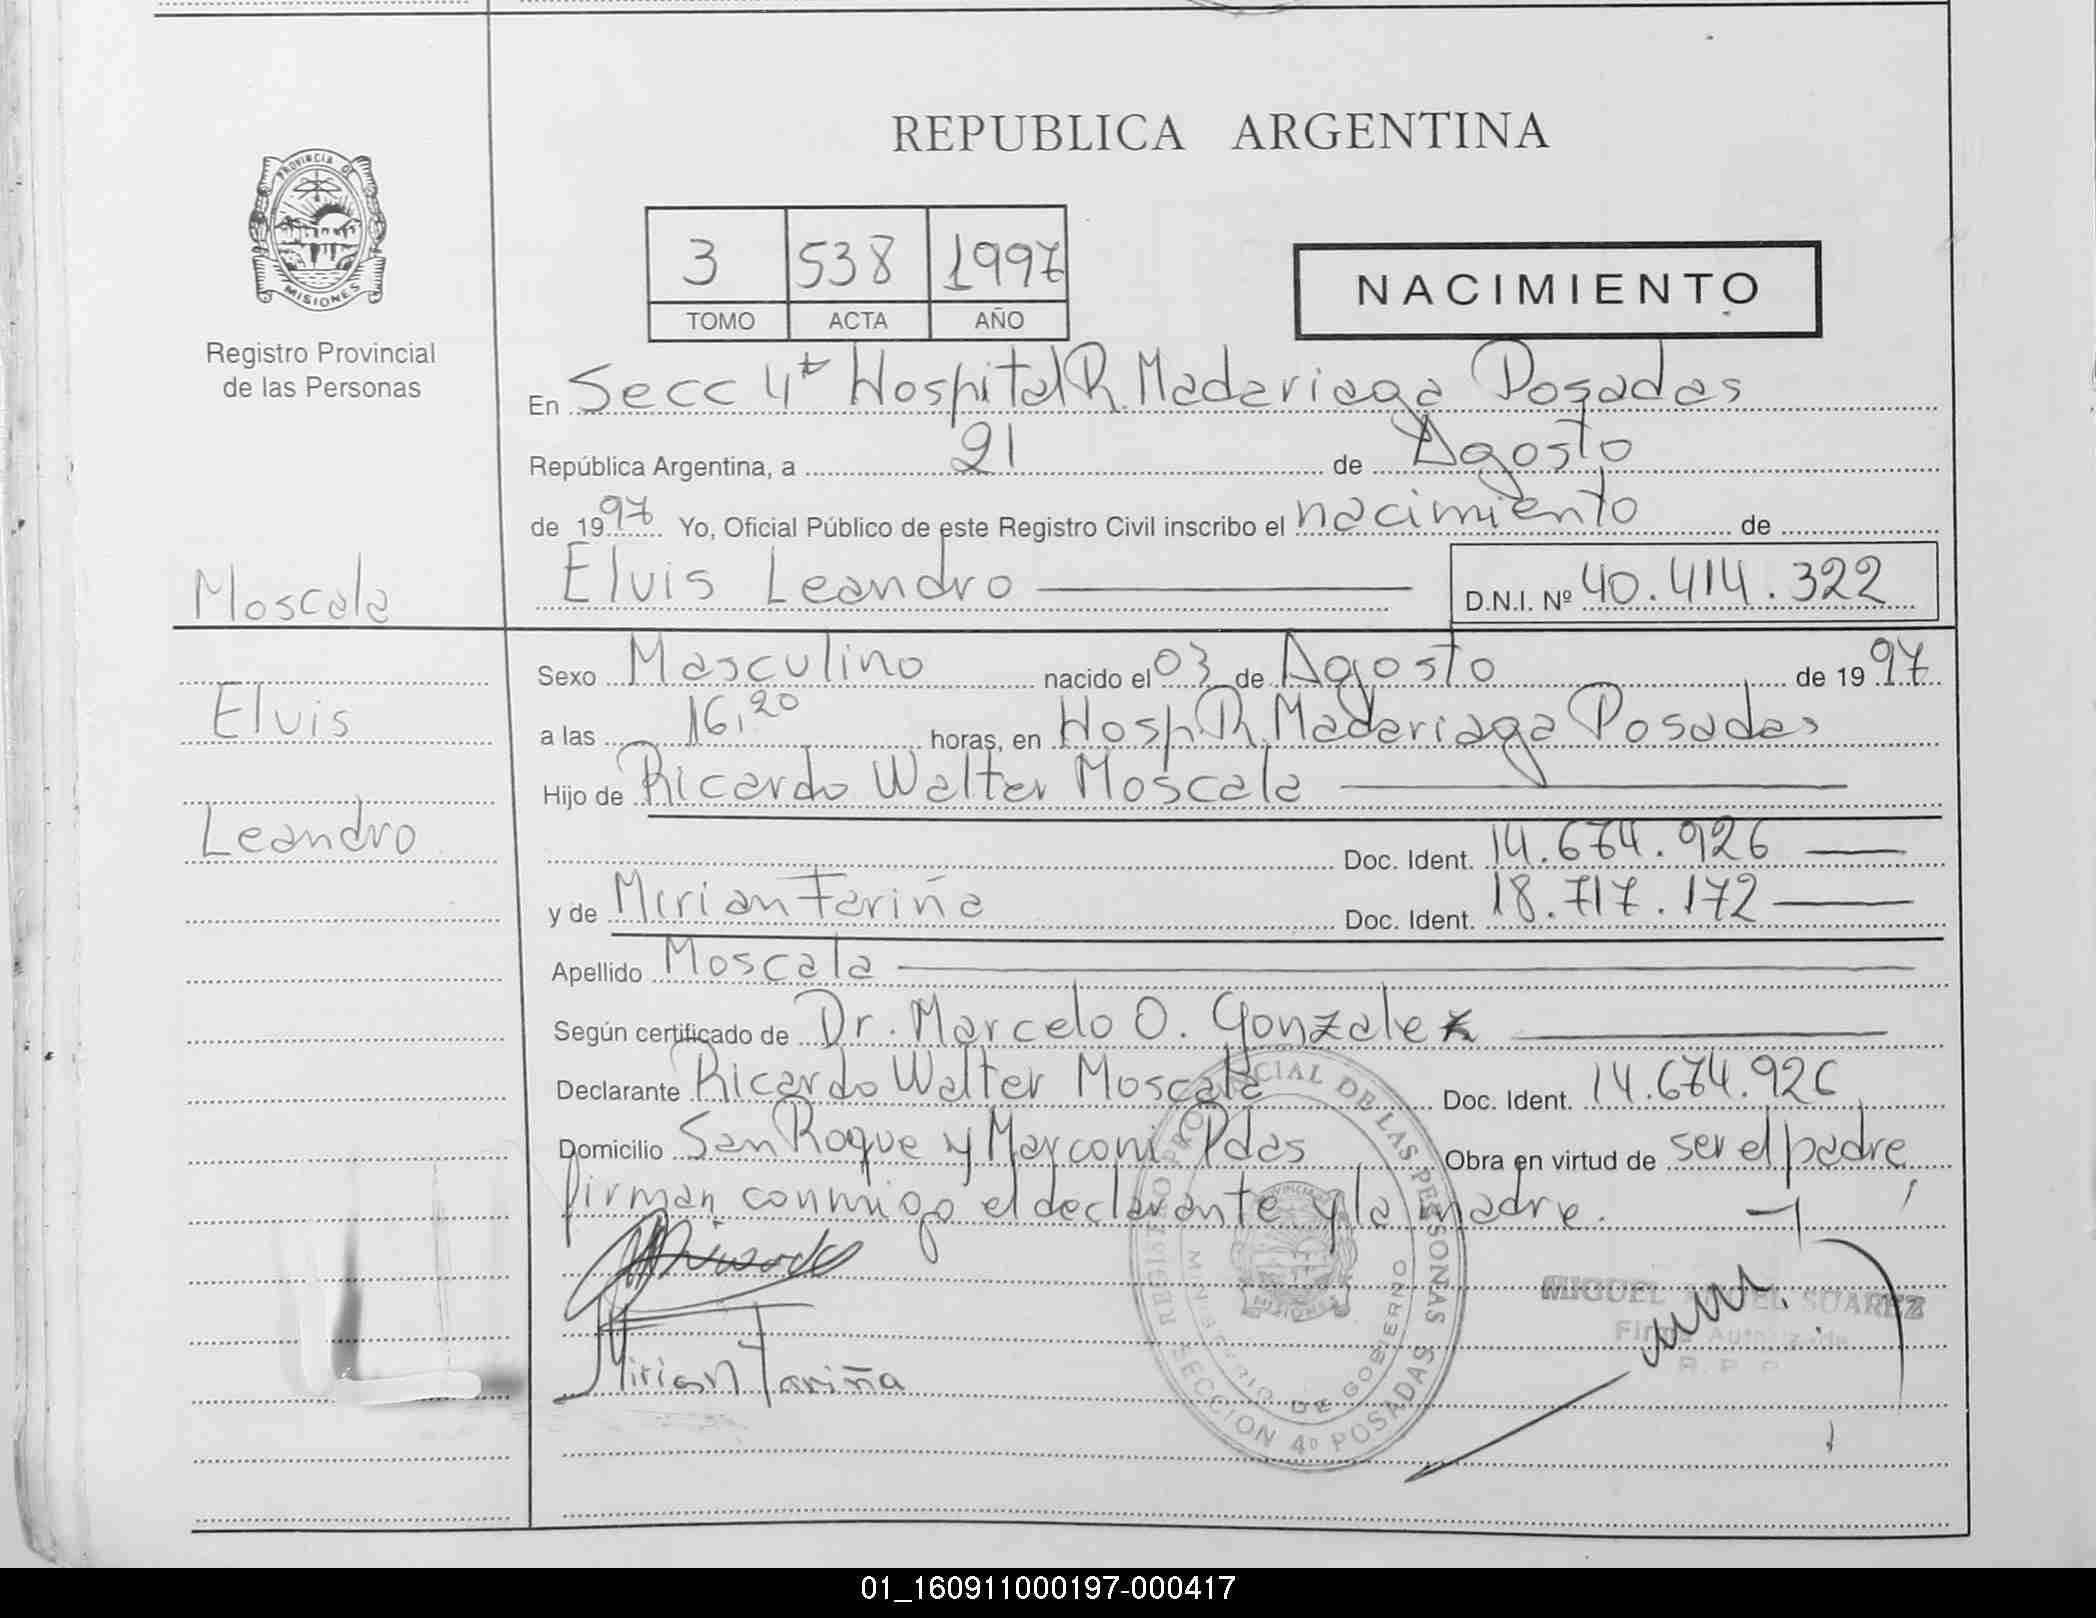 REPUBLICA ARGENTINA
PROVINCIA DE
MISIONES
Registro Provincial
de las Personas
3 538 1997
TOMO ACTA AÑO
NACIMIENTO
En Secc 4ta Hospital R. Madariaga Posadas
República Argentina, a 21 de Agosto
de 1997 Yo, Oficial Público de este Registro Civil inscribo el nacimiento de
Moscala
Elvis Leandro D.N.I. Nº 40.414.322
Sexo Masculino nacido el 03 de Agosto de 1997
Elvis
a las 16,20 horas, en Hosp R. Madariaga Posadas
Hijo de Ricardo Walter Moscala
Leandro
Doc. Ident. 14.674.926
y de Mirian Fariña Doc. Ident. 18.717.172
Apellido Moscala
Según certificado de Dr. Marcelo O. Gonzalez
Declarante Ricardo Walter Moscala Doc. Ident. 14.674.926
Domicilio San Roque y Marconi Pdas Obra en virtud de ser el padre,
firman conmigo el declarante y la madre.
Mirian Fariña
REGISTRO PROVINCIAL DE LAS PERSONAS
MINISTERIO DE GOBIERNO
SECCION 4º POSADAS
MIGUEL ANGEL SUAREZ
Firma Autorizada
R. P. P.
01_160911000197-000417